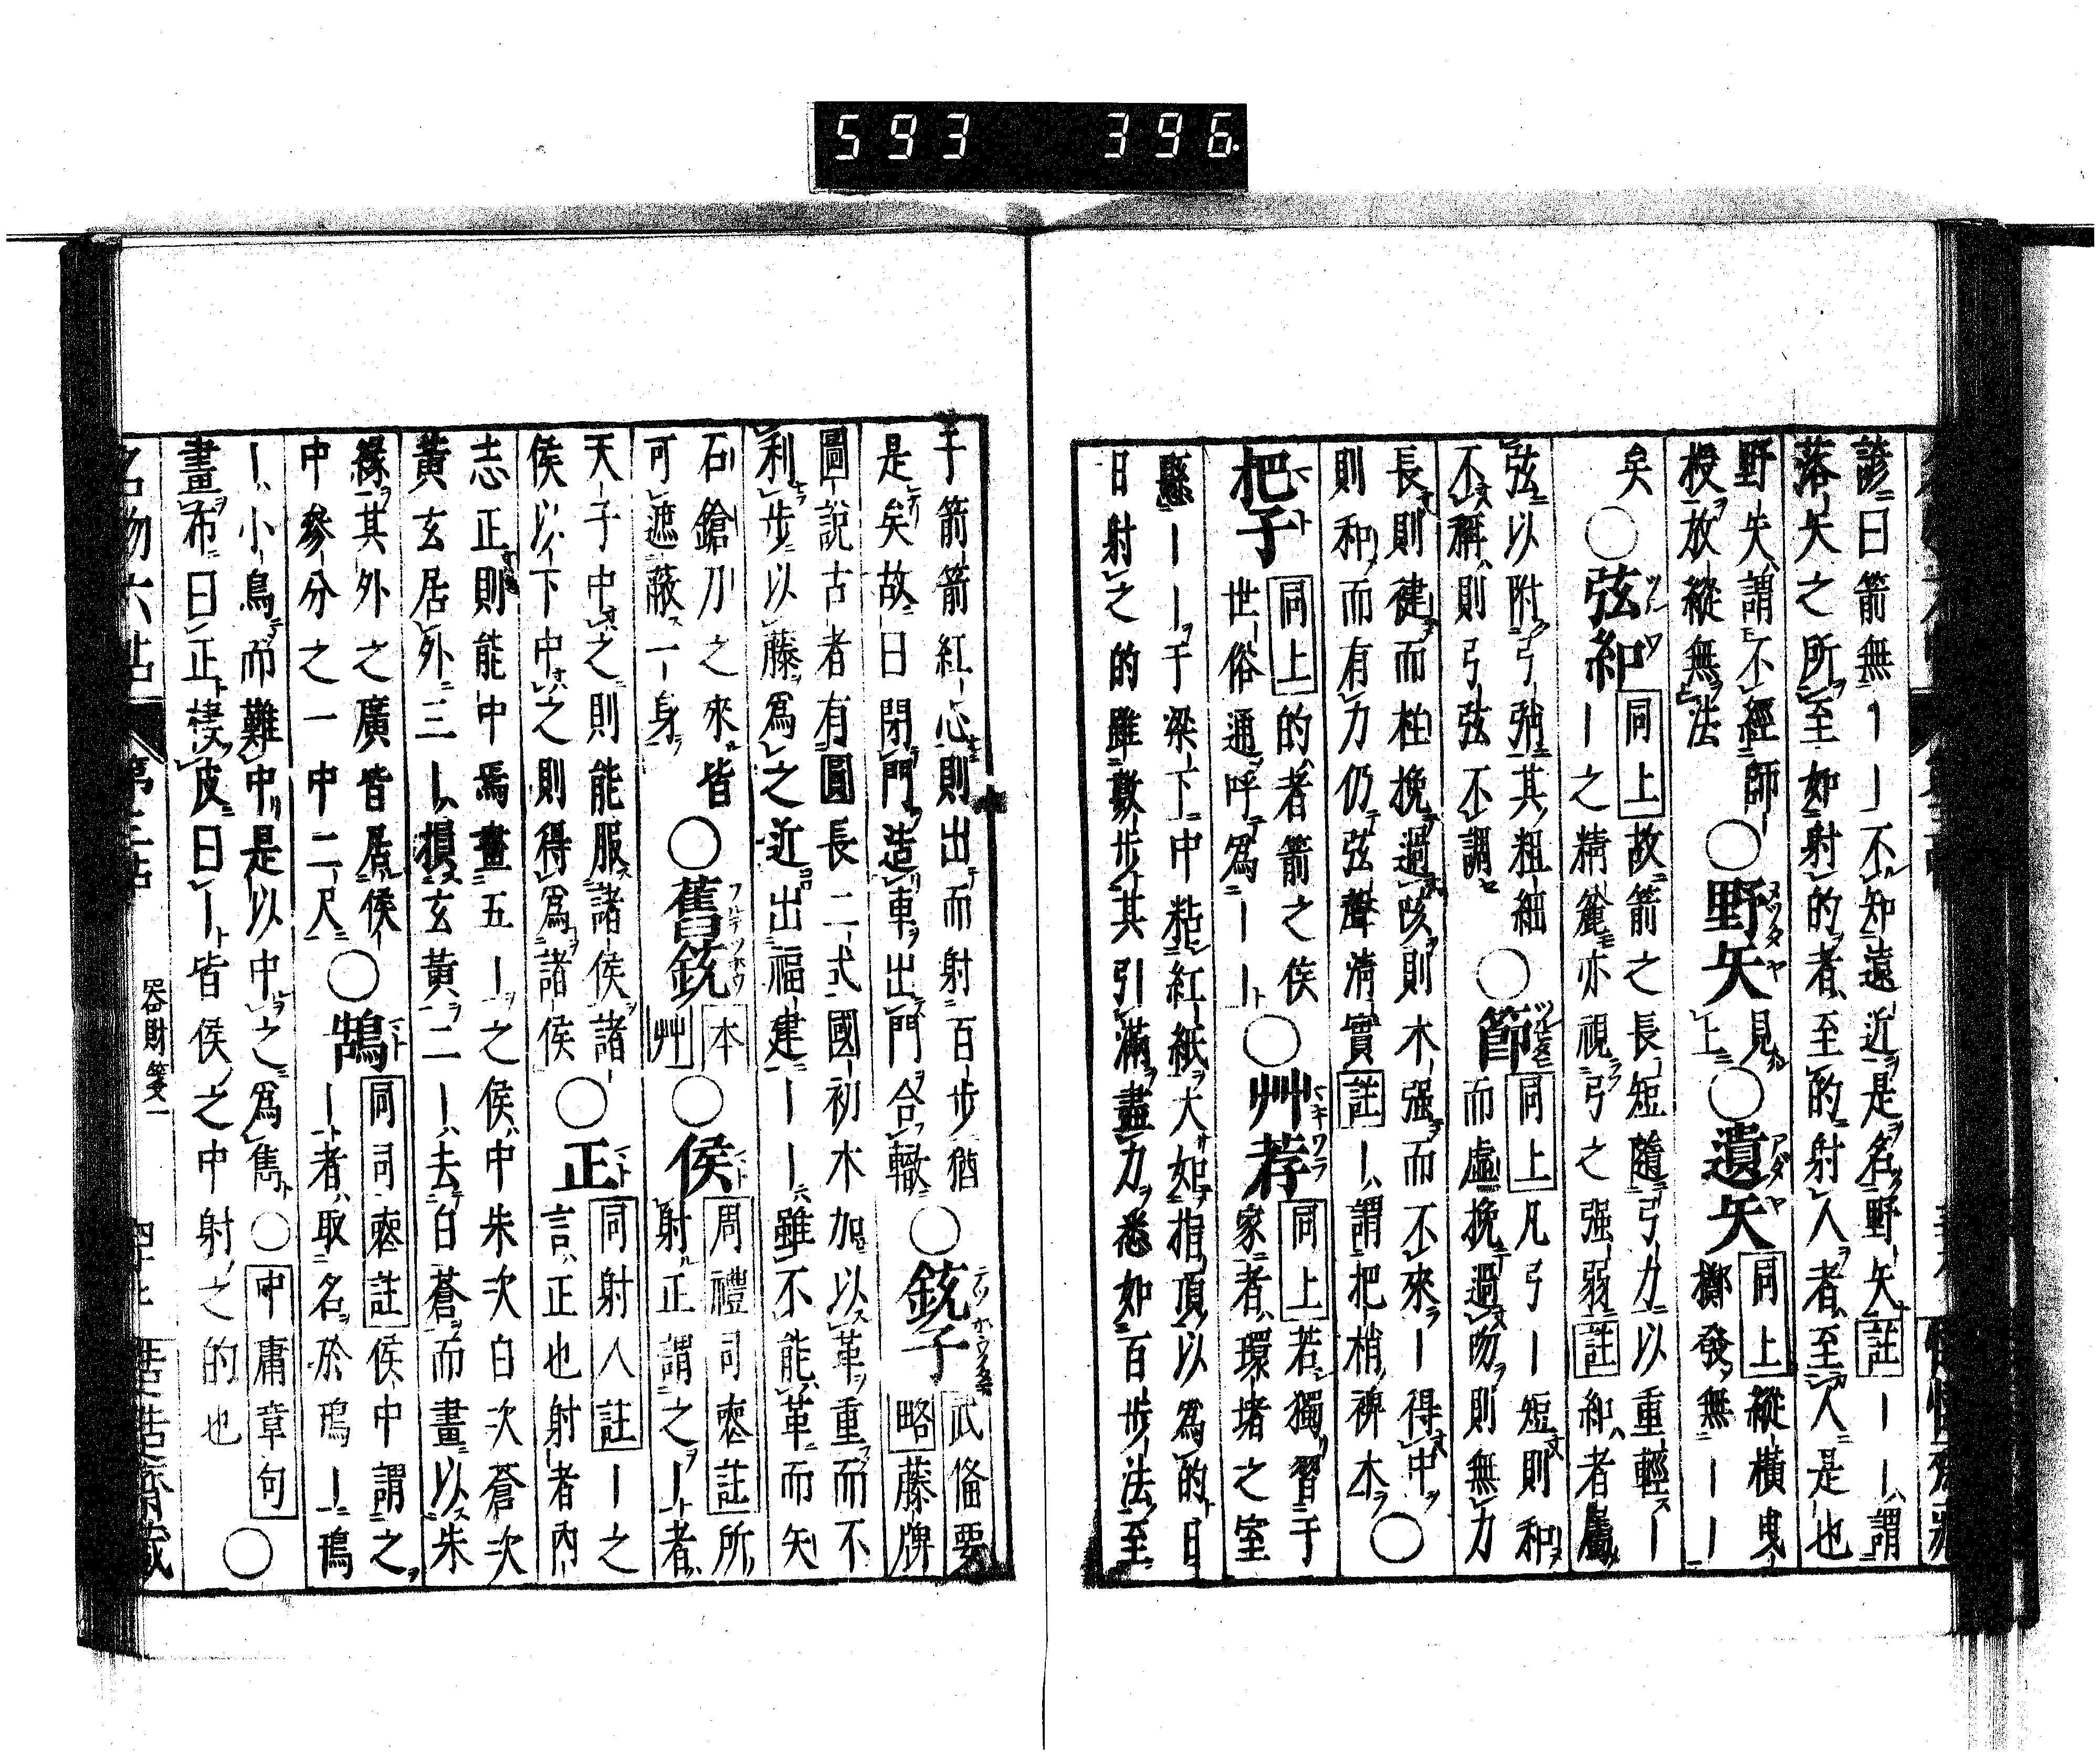 593 396
諺曰箭無丨丨不知遠近是名野矢註丨丨謂
落矢之所至如射的者至的射人者至人是也
野矢謂不經師丨
授放縱無法
○野矢見上○遺矢同上縱橫曳
擲發無丨丨
矣○弦䂓同上故箭之長短隨弓力以重輕丨
丨之精麁亦視弓之强弱註䂓者扄
弦以附弓弰其粗細
不稱則弓弦不調
○節同上凡弓丨短則和
而虛挽過吻則無力
長則健而柱挽過咳則木强而不來丨得中
則和而有力仍弦聲淸實註丨謂把梢裨木○
把子同上的者箭之侯
世俗通呼爲丨丨
○艸荐同上若獨習于
家者環堵之室
懸丨丨于梁下中粘紅紙大如指頂以爲的日
日射之的雖數步其引滿盡力悉如百步法至
手箭箭紅心則出而射百步猶
是矣故曰閉門造車出門合轍
○銃子武俻要
略藤牌
圖說古者有圓長二式國初木加以革重而不
利步以藤爲之近出福建丨丨雖不能革而矢
石鎗刀之來皆
可遮蔽一身
○舊銃本艸○侯周禮司裘註所
射正謂之丨者
天子中之則能服諸侯諸
侯以下中之則得爲諸侯
○正同射人註丨之
言正也射者內
志正則能中焉畫五丨之侯中朱次白次蒼次
黃玄居外三丨損玄黃二丨去白蒼而畫以朱
綠其外之廣皆居侯
中參分之一中二尺
○鵠同司裘註侯中謂之
丨者取名於鳱丨鳱
丨小鳥而難中是以中之爲雋○中庸章句
畫布曰正棲皮曰丨皆侯之中射之的也○
名物六帖 器財箋一